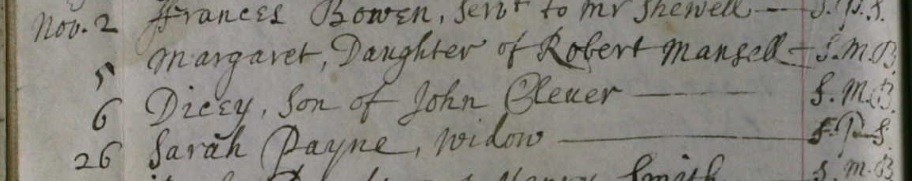 Nov. 2 Frances Bowen, Servt to Mr Shewell — S.P.S.
5 Margaret, Daughter of Robert Mansell — S.M.B.
6 Dicey, Son of John Clever — S.M.B.
26 Sarah Payne, Widow — S.P.S.
Smith S.M.B